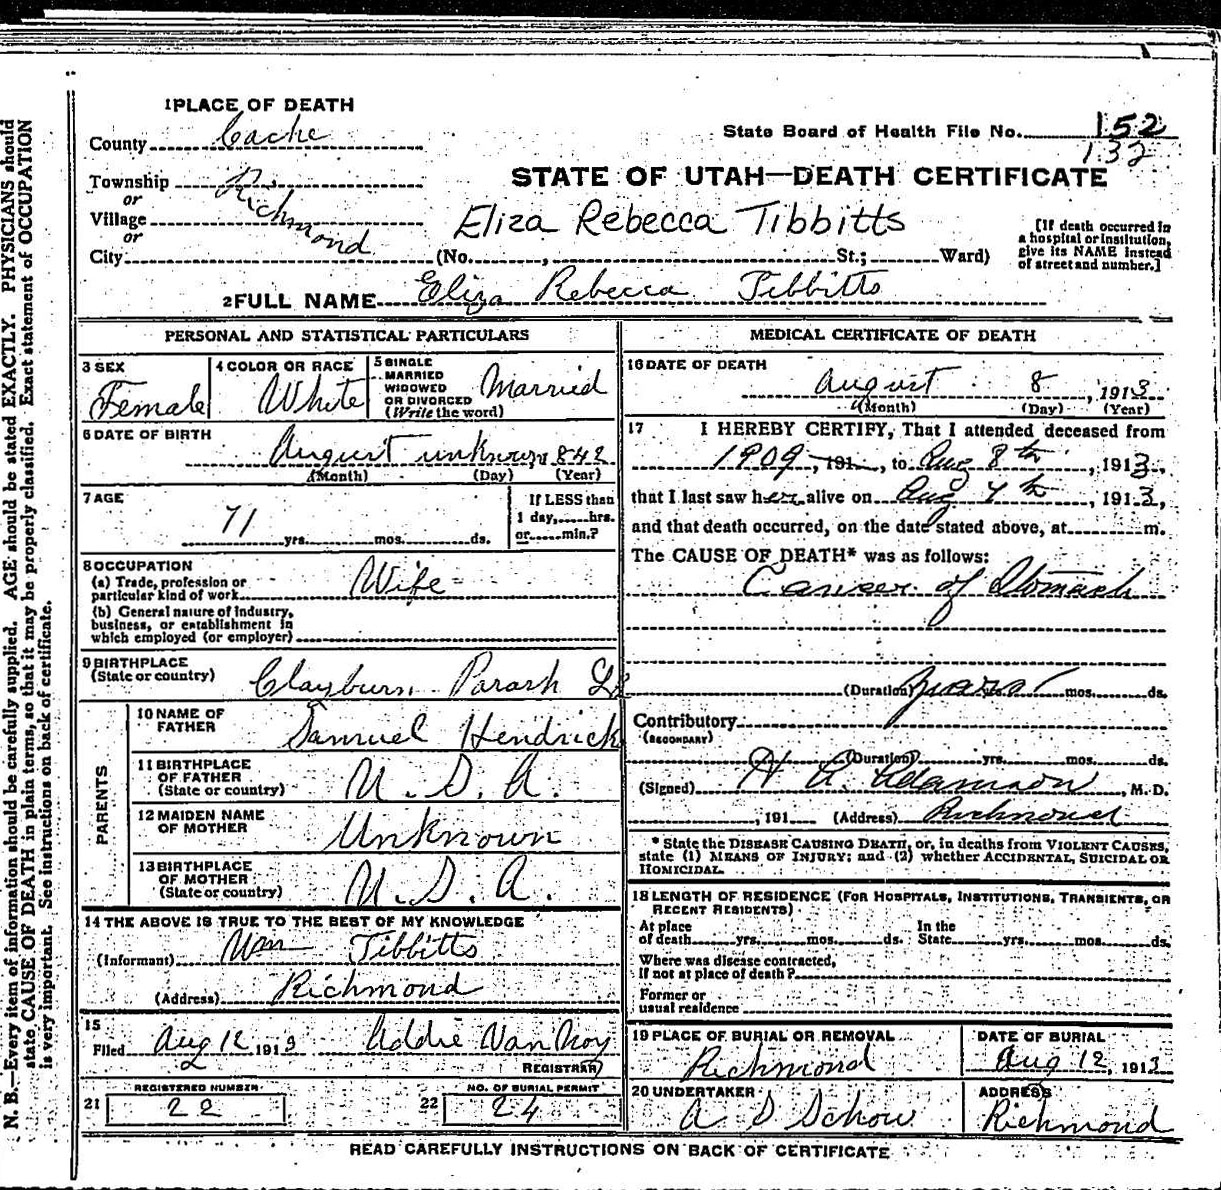 1 PLACE OF DEATH
County Cache
State Board of Health File No. 152
132
Township
or
Village Richmond
or
City (No. , St.; Ward)
STATE OF UTAH—DEATH CERTIFICATE
Eliza Rebecca Tibbitts
[If death occurred in
a hospital or institution,
give its NAME instead
of street and number.]
2 FULL NAME Eliza Rebecca Tibbitts
PERSONAL AND STATISTICAL PARTICULARS
3 SEX
Female
4 COLOR OR RACE
White
5 SINGLE
MARRIED
WIDOWED
OR DIVORCED
(Write the word)
Married
6 DATE OF BIRTH
August unknown 842
(Month) (Day) (Year)
7 AGE
71
yrs. mos. ds.
If LESS than
1 day, hrs.
or min.?
8 OCCUPATION
(a) Trade, profession or
particular kind of work Wife
(b) General nature of industry,
business, or establishment in
which employed (or employer)
9 BIRTHPLACE
(State or country) Clayburn Parash
PARENTS
10 NAME OF
FATHER
Samuel Hendrick
11 BIRTHPLACE
OF FATHER
(State or country)
U. S. A.
12 MAIDEN NAME
OF MOTHER
Unknown
13 BIRTHPLACE
OF MOTHER
(State or country)
U. S. A.
14 THE ABOVE IS TRUE TO THE BEST OF MY KNOWLEDGE
(Informant) Tibbitts
(Address) Richmond
15
Filed Aug 12 1913 Addie Van Noy
REGISTRAR
REGISTERED NUMBER
21 22
NO. OF BURIAL PERMIT
22 24
MEDICAL CERTIFICATE OF DEATH
16 DATE OF DEATH
August 8, 1913
(Month) (Day) (Year)
17 I HEREBY CERTIFY, That I attended deceased from
1909, 191 , to Aug 8th, 1913,
that I last saw her alive on Aug 7th, 1913,
and that death occurred, on the date stated above, at m.
The CAUSE OF DEATH* was as follows:
Cancer of Stomach
(Duration) years mos. ds.
Contributory
(SECONDARY)
(Duration) yrs. mos. ds.
(Signed) H A Adamson, M. D.
, 191 (Address) Richmond
* State the DISEASE CAUSING DEATH, or, in deaths from VIOLENT CAUSES,
state (1) MEANS OF INJURY; and (2) whether ACCIDENTAL, SUICIDAL OR
HOMICIDAL.
18 LENGTH OF RESIDENCE (FOR HOSPITALS, INSTITUTIONS, TRANSIENTS, OR
RECENT RESIDENTS)
At place
of death yrs. mos. ds.
In the
State yrs. mos. ds.
Where was disease contracted,
if not at place of death?
Former or
usual residence
19 PLACE OF BURIAL OR REMOVAL
Richmond
DATE OF BURIAL
Aug 12, 1913
20 UNDERTAKER
A S Schow
ADDRESS
Richmond
READ CAREFULLY INSTRUCTIONS ON BACK OF CERTIFICATE
N. B.—Every item of information should be carefully supplied. AGE should be stated EXACTLY. PHYSICIANS should
state CAUSE OF DEATH in plain terms, so that it may be properly classified. Exact statement of OCCUPATION
is very important. See instructions on back of certificate.